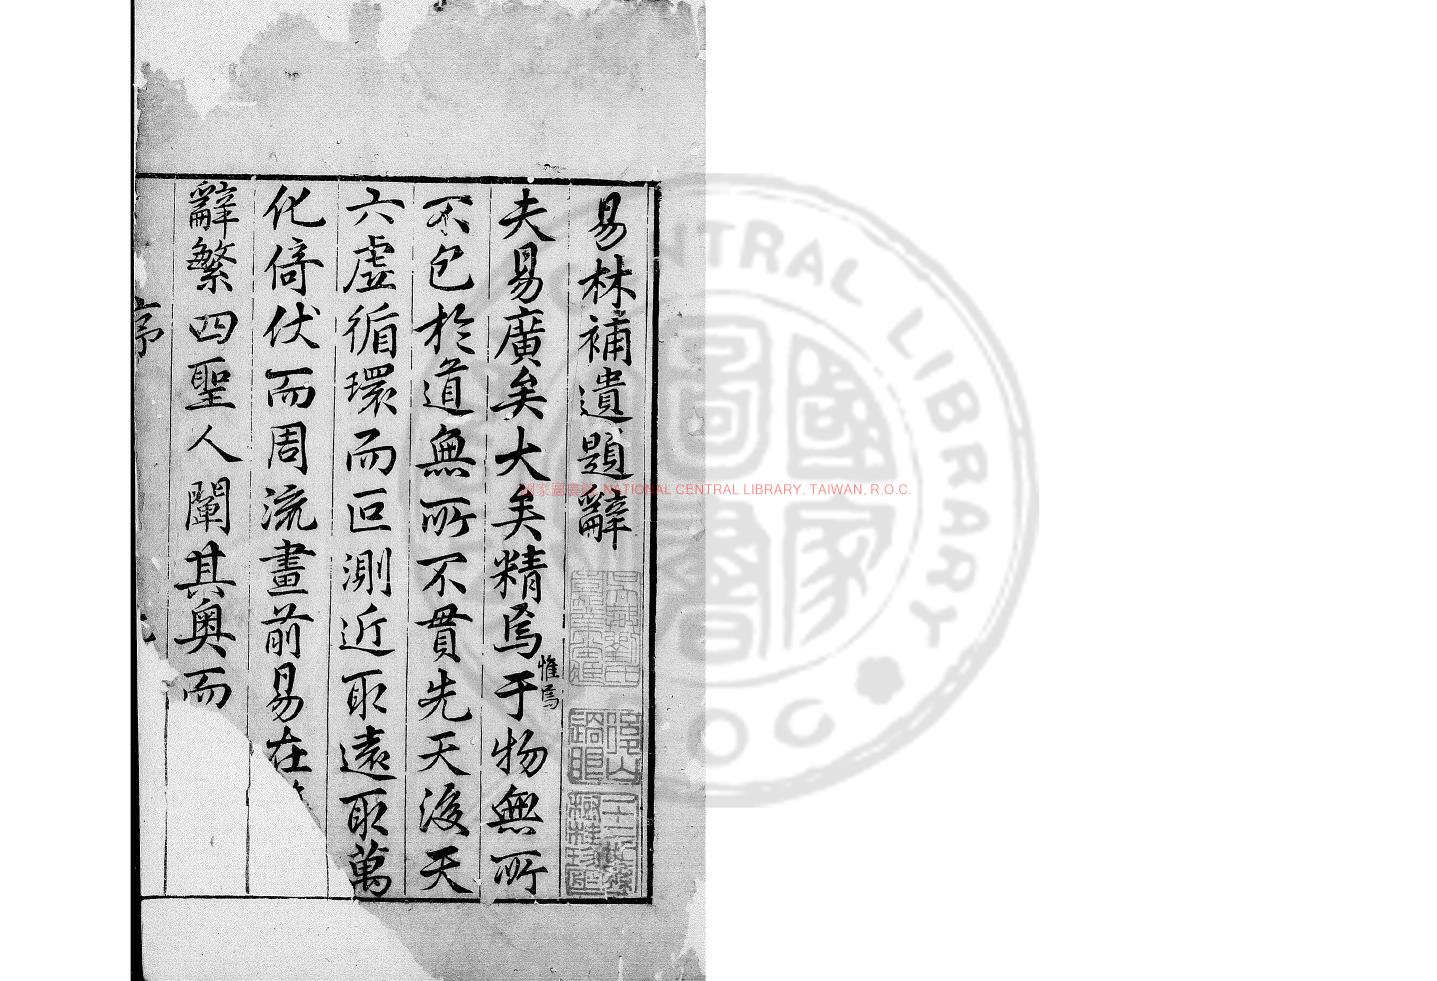 易林補遺題辭
夫易廣矣大矣精焉于物無所
惟焉
不包於道無所不貫先天後天
六虛循環而叵測近取遠取萬
化倚伏而周流畫前易在
辭繁四聖人闡其奧而
序
國家圖書館 NATIONAL CENTRAL LIBRARY, TAIWAN, R.O.C.
CENTRAL LIBRARY
國家圖書